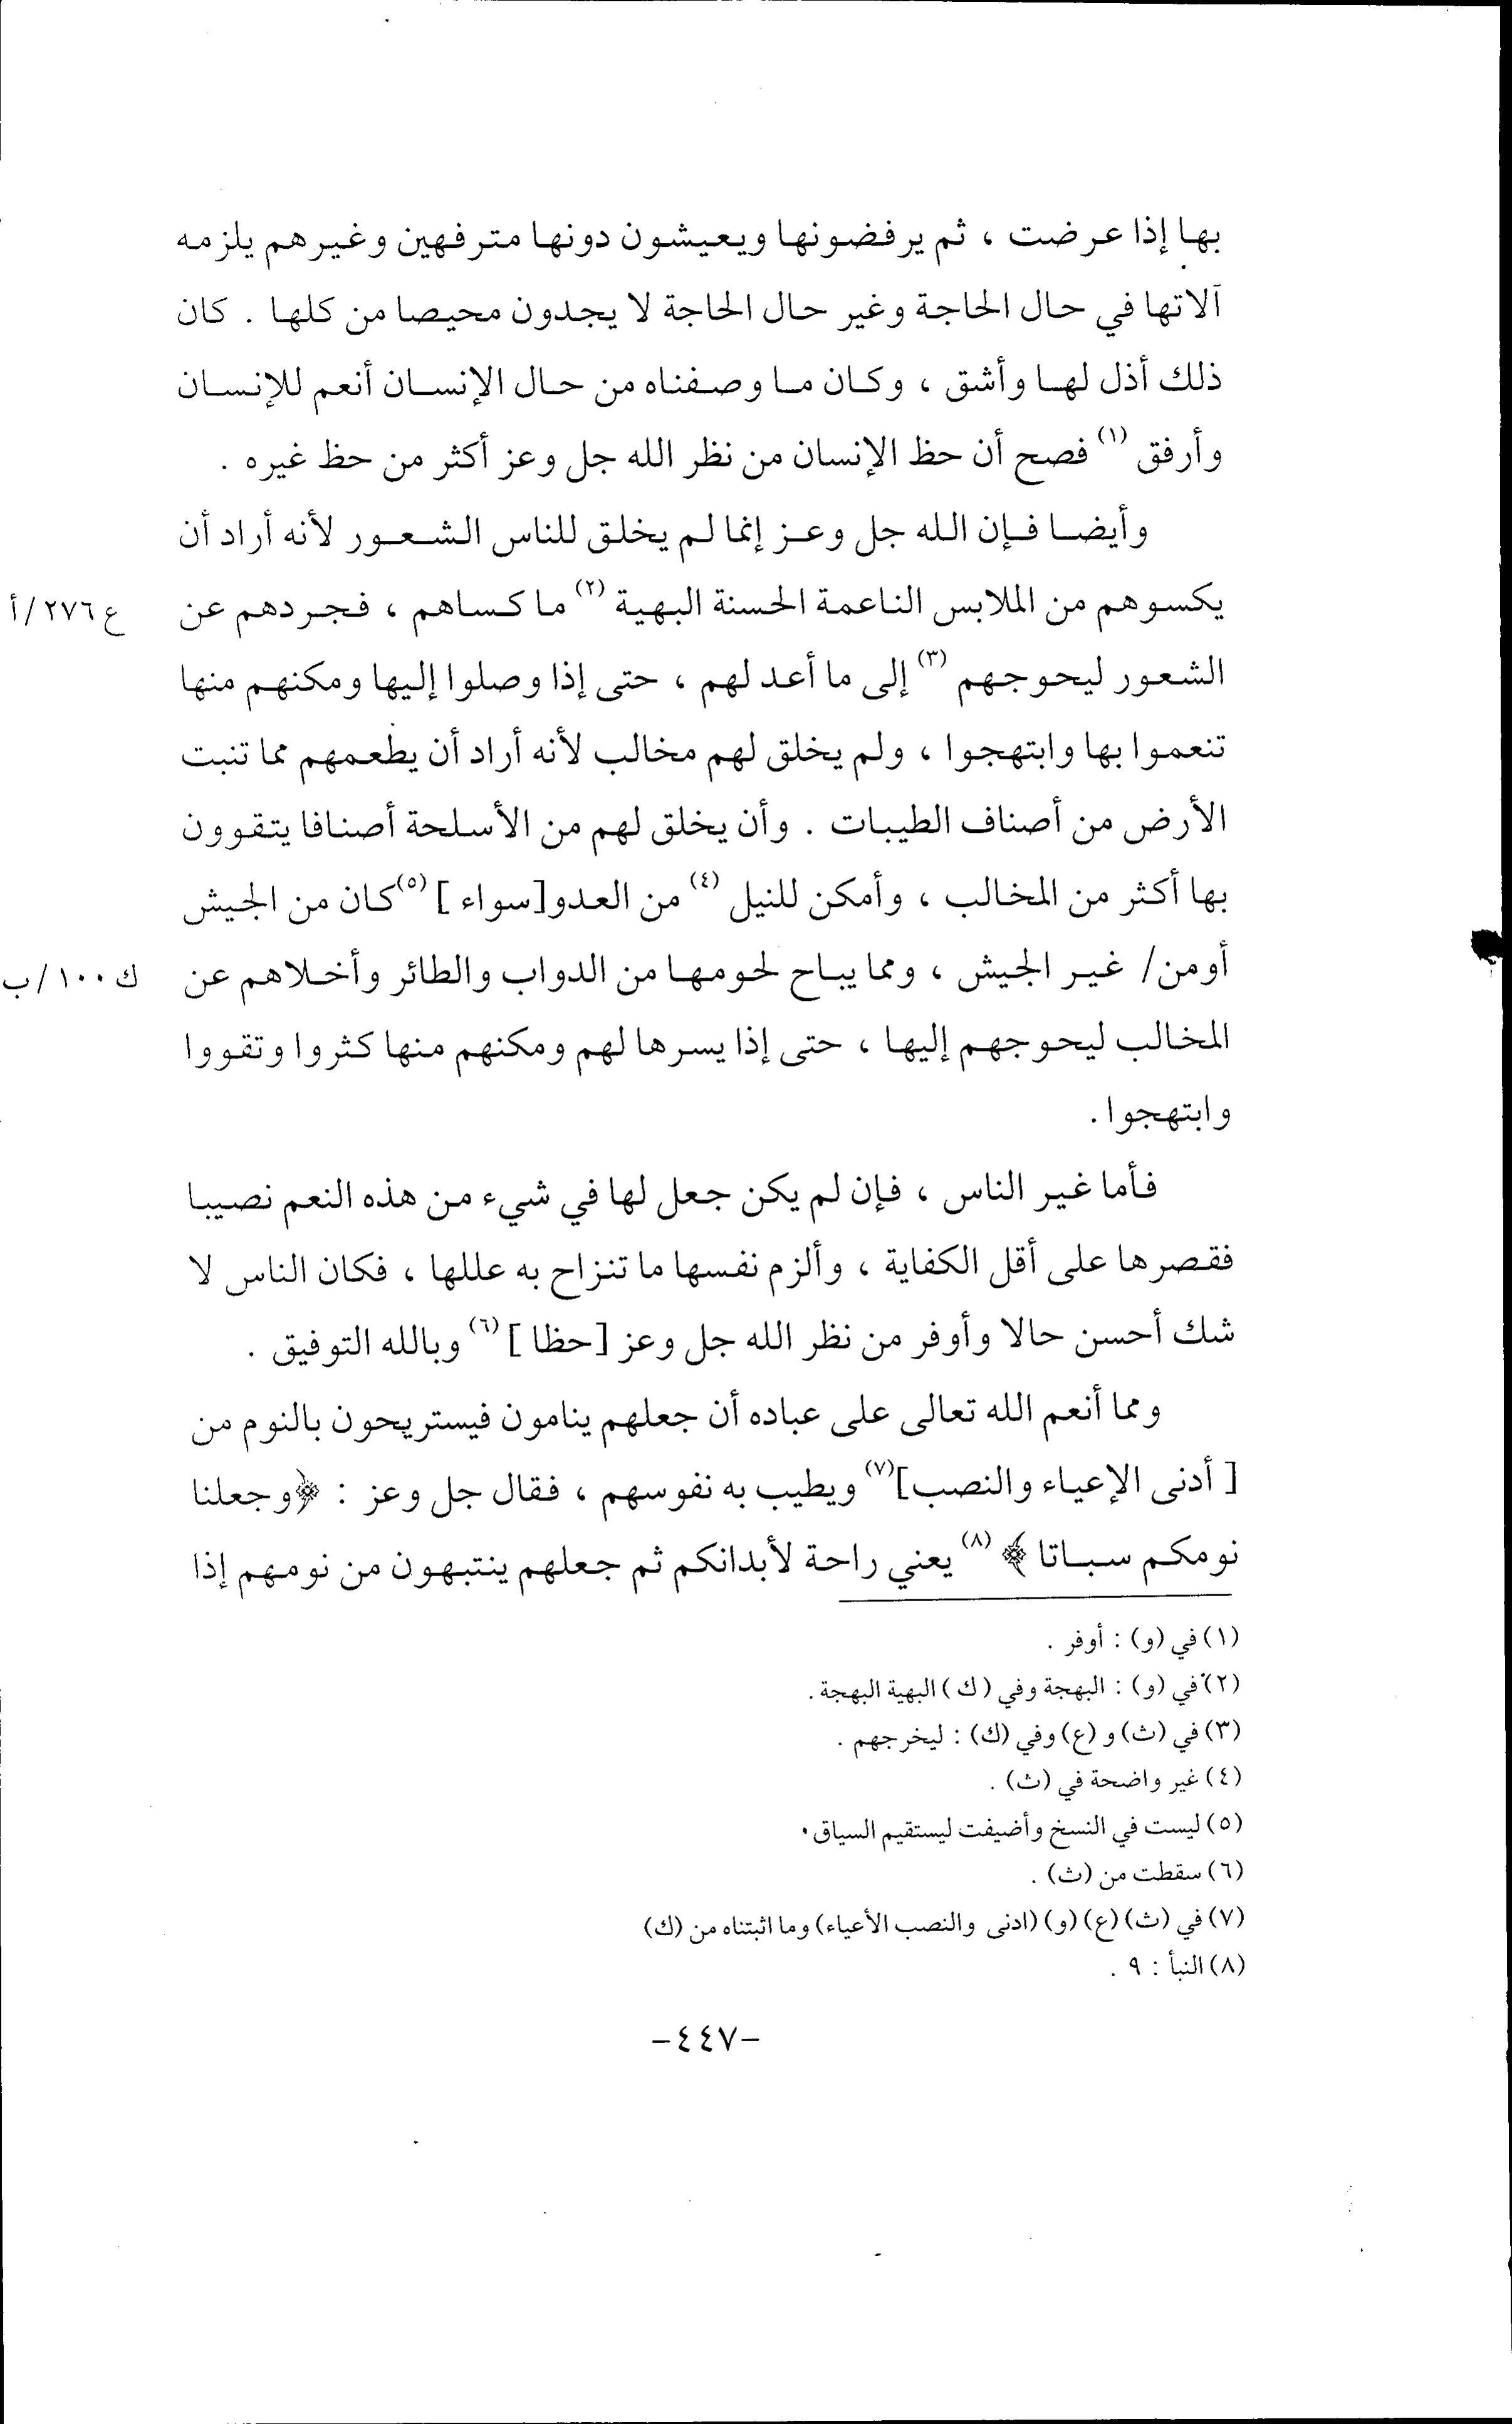 بها إذا عرضت ، ثم يرفضونها ويعيشون دونها مترفهين وغيرهم يلزمه
آلاتها في حال الحاجة وغير حال الحاجة لا يجدون محيصا من كلها . كان
ذلك أذل لها وأشق ، وكان ما وصفناه من حال الإنسان أنعم للإنسان
وأرفق (١) فصح أن حظ الإنسان من نظر الله جل وعز أكثر من حظ غيره .
وأيضا فإن الله جل وعز إنما لم يخلق للناس الشعور لأنه أراد أن
يكسوهم من الملابس الناعمة الحسنة البهية (٢) ما كساهم ، فجردهم عن ع ٢٧٦/أ
الشعور ليحوجهم (٣) إلى ما أعد لهم ، حتى إذا وصلوا إليها ومكنهم منها
تنعموا بها وابتهجوا ، ولم يخلق لهم مخالب لأنه أراد أن يطعمهم مما تنبت
الأرض من أصناف الطيبات . وأن يخلق لهم من الأسلحة أصنافا يتقوون
بها أكثر من المخالب ، وأمكن للنيل (٤) من العدو[سواء ] (٥)كان من الجيش
أومن/ غير الجيش ، ومما يباح لحومها من الدواب والطائر وأخلاهم عن ك ١٠٠/ب
المخالب ليحوجهم إليها ، حتى إذا يسرها لهم ومكنهم منها كثروا وتقووا
وابتهجوا .
فأما غير الناس ، فإن لم يكن جعل لها في شيء من هذه النعم نصيبا
فقصرها على أقل الكفاية ، وألزم نفسها ما تنزاح به عللها ، فكان الناس لا
شك أحسن حالا وأوفر من نظر الله جل وعز [حظا ] (٦) وبالله التوفيق .
ومما أنعم الله تعالى على عباده أن جعلهم ينامون فيستريحون بالنوم من
[ أدنى الإعياء والنصب](٧) ويطيب به نفوسهم ، فقال جل وعز : ﴿وجعلنا
نومكم سباتا ﴾ (٨) يعني راحة لأبدانكم ثم جعلهم ينتبهون من نومهم إذا
(١) في (و) : أوفر .
(٢) في (و) : البهجة وفي (ك ) البهية البهجة .
(٣) في (ث) و (ع) وفي (ك) : ليخرجهم .
(٤) غير واضحة في (ث) .
(٥) ليست في النسخ وأضيفت ليستقيم السياق .
(٦) سقطت من (ث) .
(٧) في (ث) (ع) (و) (ادنى والنصب الأعياء) وما اثبتناه من (ك)
(٨) النبأ : ٩ .
-٤٤٧-